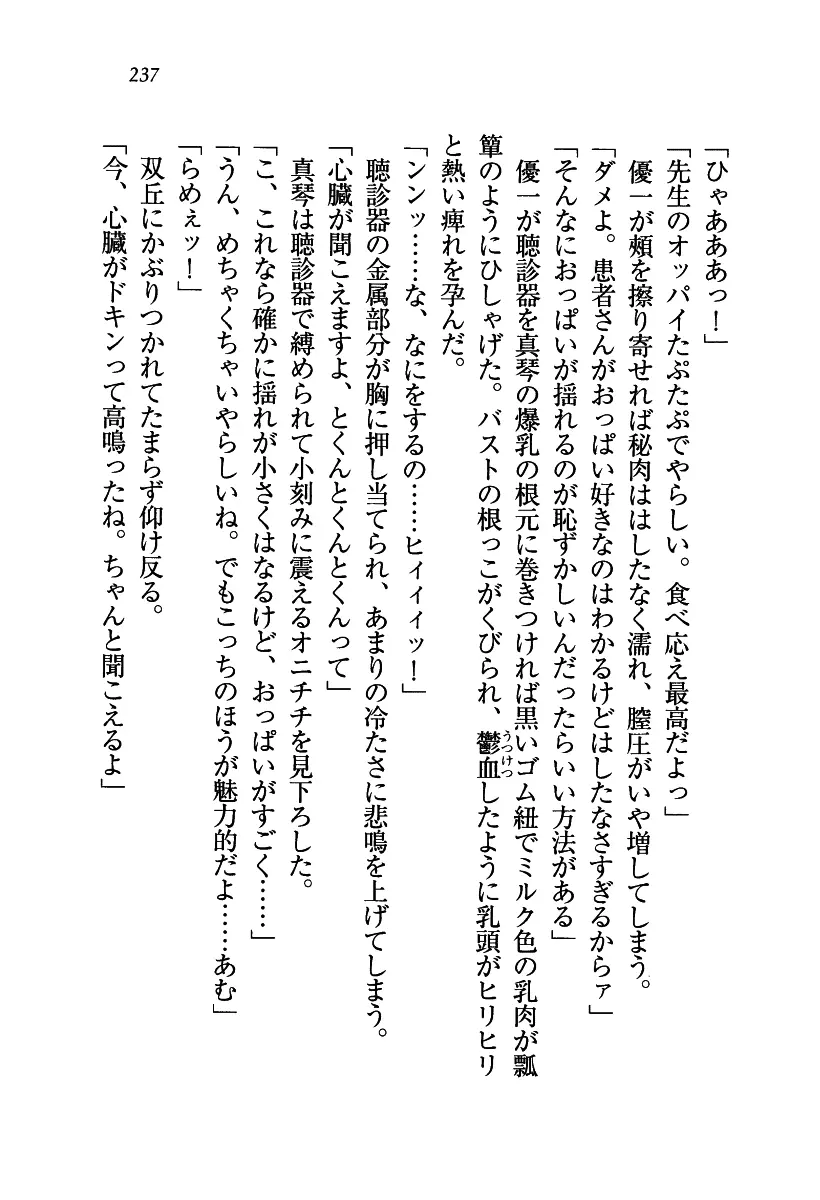 237
「ひゃあああっ！」
「先生のオッパイたぷたぷでやらしい。食べ応え最高だよっ」
優一が頰を擦り寄せれば秘肉ははしたなく濡れ、膣圧がいや増してしまう。
「ダメよ。患者さんがおっぱい好きなのはわかるけどはしたなさすぎるからァ」
「そんなにおっぱいが揺れるのが恥ずかしいんだったらいい方法がある」
優一が聴診器を真琴の爆乳の根元に巻きつければ黒いゴム紐でミルク色の乳肉が瓢
簞のようにひしゃげた。バストの根っこがくびられ、鬱血したように乳頭がヒリヒリ
うっけつ
と熱い痺れを孕んだ。
「ンンッ……な、なにをするの……ヒィィィッ！」
聴診器の金属部分が胸に押し当てられ、あまりの冷たさに悲鳴を上げてしまう。
「心臓が聞こえますよ、とくんとくんとくんって」
真琴は聴診器で縛められて小刻みに震えるオニチチを見下ろした。
「こ、これなら確かに揺れが小さくはなるけど、おっぱいがすごく……」
「うん、めちゃくちゃいやらしいね。でもこっちのほうが魅力的だよ……あむ」
「らめぇッ！」
双丘にかぶりつかれてたまらず仰け反る。
「今、心臓がドキンって高鳴ったね。ちゃんと聞こえるよ」